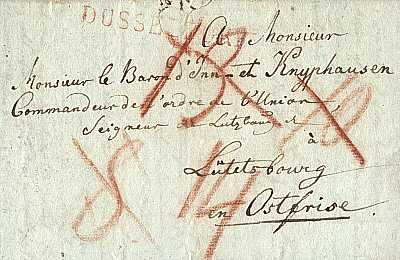 DUSSE
A Monsieur
Monsieur le Baron d'Inn- et Knyphausen
Commandeur de l'ordre de l'Union
Seigneur de
à
Lütetsbourg
en Ostfrise.
14